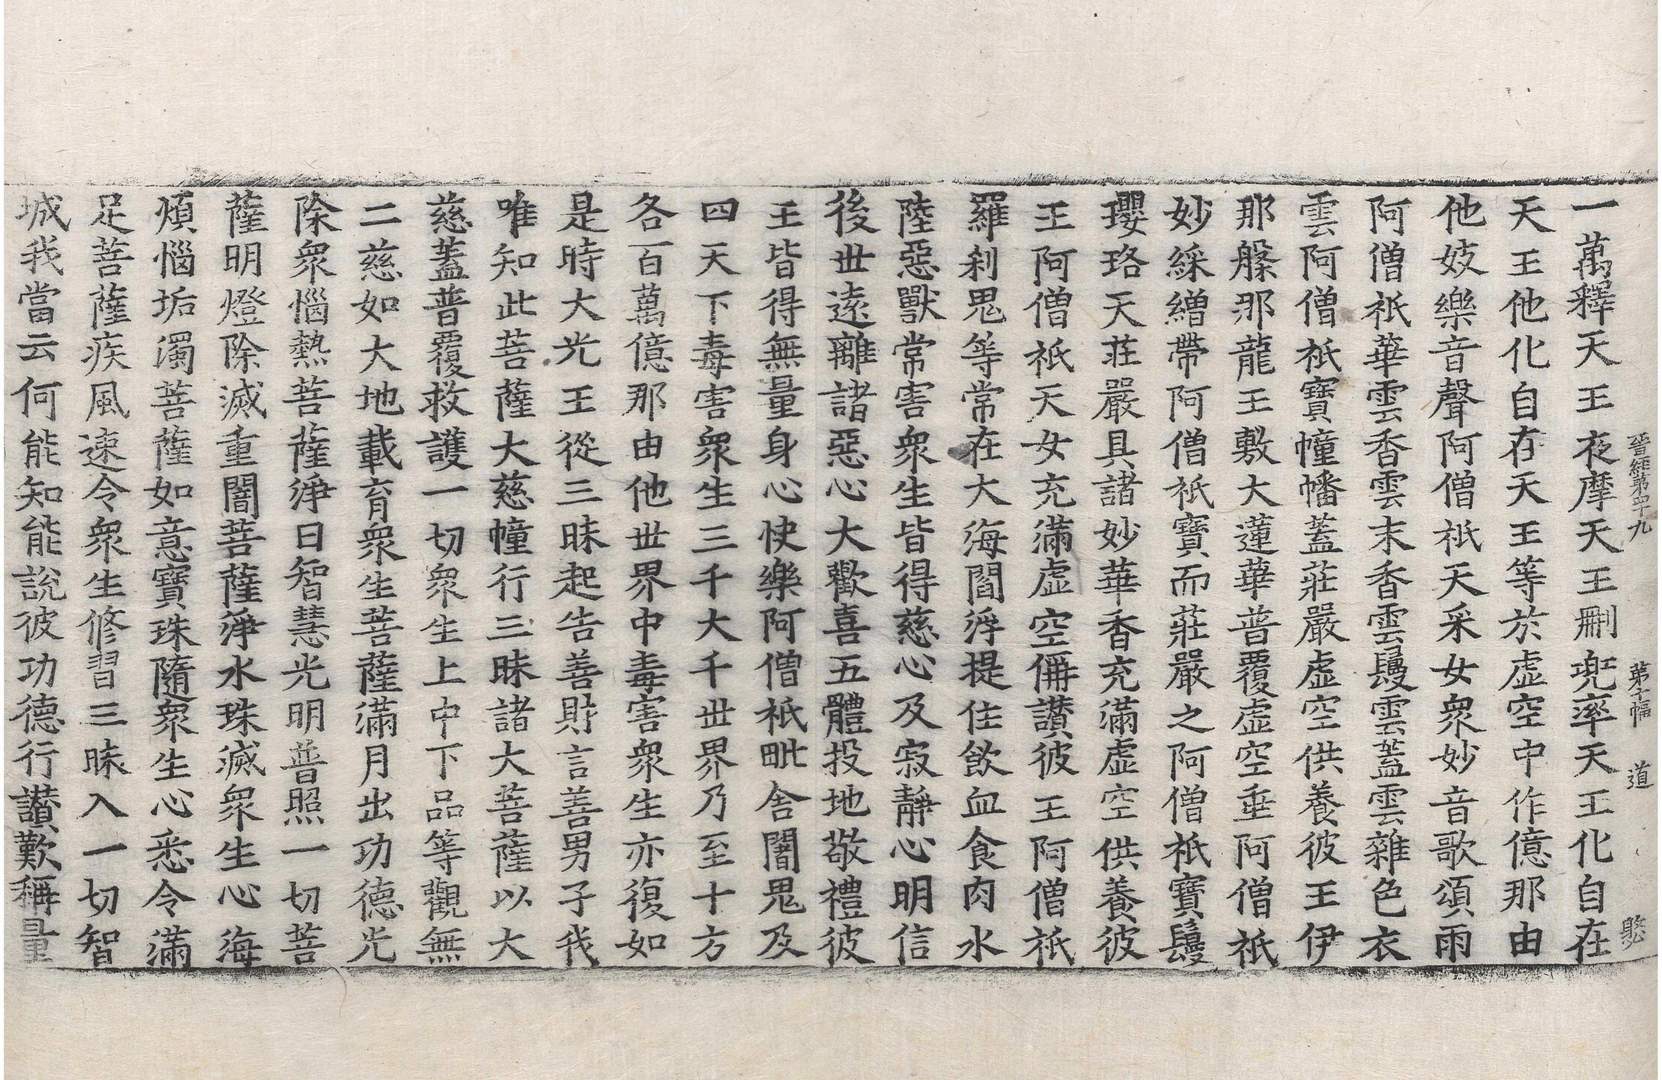 晉經第四十九 第十幅 道
一萬釋天王夜摩天王刪兜率天王化自在
天王他化自在天王等於虛空中作億那由
他妓樂音聲阿僧祇天采女衆妙音歌頌雨
阿僧祇華雲香雲末香雲鬘雲蓋雲雜色衣
雲阿僧祇寶幢幡蓋莊嚴虛空供養彼王伊
那槃那龍王敷大蓮華普覆虛空垂阿僧祇
妙綵繒帶阿僧祇寶而莊嚴之阿僧祇寶鬘
瓔珞天莊嚴具諸妙華香充滿虛空供養彼
王阿僧祇天女充滿虛空偁讃彼王阿僧祇
羅刹鬼等常在大海閻浮提住飲血食肉水
陸惡獸常害衆生皆得慈心及寂靜心明信
後世遠離諸惡心大歡喜五體投地敬禮彼
王皆得無量身心快樂阿僧祇毗舍闍鬼及
四天下毒害衆生三千大千世界乃至十方
各百萬億那由他世界中毒害衆生亦復如
是時大光王從三昧起告善財言善男子我
唯知此菩薩大慈幢行三昧諸大菩薩以大
慈蓋普覆救護一切衆生上中下品等觀無
二慈如大地載育衆生菩薩滿月出功德光
除衆惱熱菩薩淨日智慧光明普照一切菩
薩明燈除滅重闇菩薩淨水珠滅衆生心海
煩惱垢濁菩薩如意寶珠隨衆生心悉令滿
足菩薩疾風速令衆生修習三昧入一切智
城我當云何能知能說彼功德行讃歎稱量